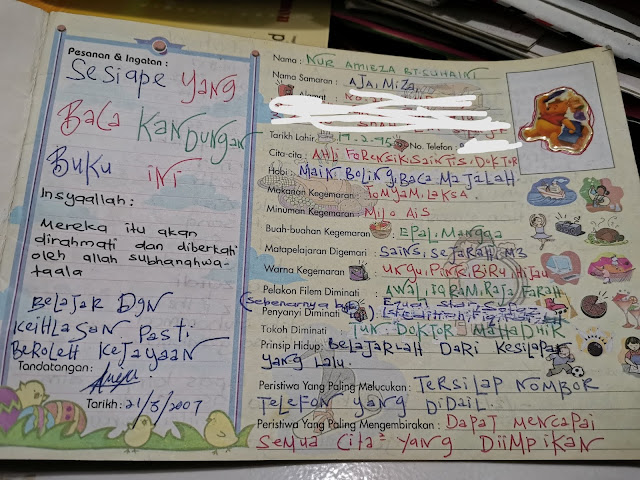 Pesanan & Ingatan :
Sesiape yang
Baca Kandungan
Buku ini
Insyaallah :
Mereka itu akan
dirahmati dan diberkati
oleh allah subhanahwa-
taala
Belajar Dgn
Keihlasan Pasti
Beroleh Kejayaan
Tandatangan:
Tarikh: 21/5/2007
Nama : NUR AMIEZA BT. SUHAINI
Nama Samaran : AJAIMIZA
Alamat :
Tarikh Lahir: 17.2.95 No. Telefon :
Cita-cita : Ahli Forensik, Saintis, Doktor
Hobi : Main Boling, Baca Majalah
Makanan Kegemaran : Tomyam, Laksa
Minuman Kegemaran : Milo Ais
Buah-buahan Kegemaran : Epal, Mangga
Matapelajaran Digemari : Sains, Sejarah, M3
Warna Kegemaran : Ungu, Pink, Biru, Hijau
Pelakon Filem Diminati : Awal, Iqram, Raja Farah
Penyanyi Diminati :
Tokoh Diminati : Tun. Doktor Mahadhir
Prinsip Hidup: Belajarlah Dari Kesilapan
yang lalu.
Peristiwa Yang Paling Melucukan : Tersilap Nombor
Telefon yang didail.
Peristiwa Yang Paling Mengembirakan : Dapat mencapai
semua cita² yang diimpikan